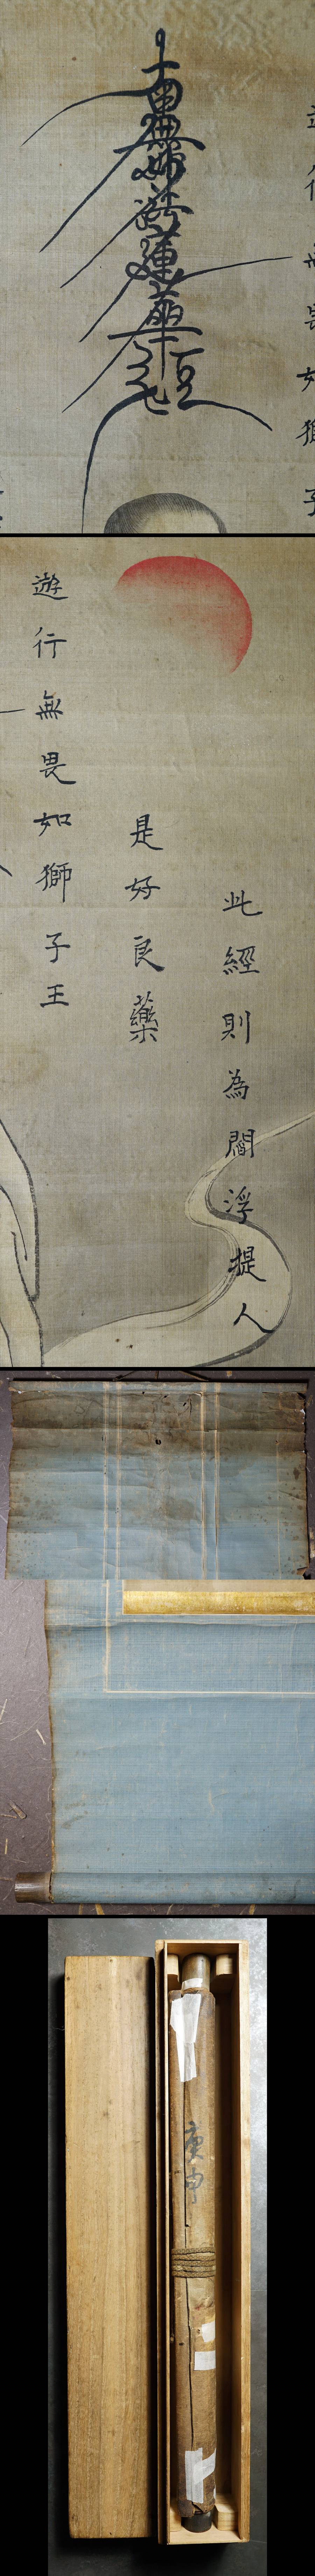 南無妙法蓮華經
此經則為閻浮提人
是好良藥
遊行無畏如獅子王
庚申